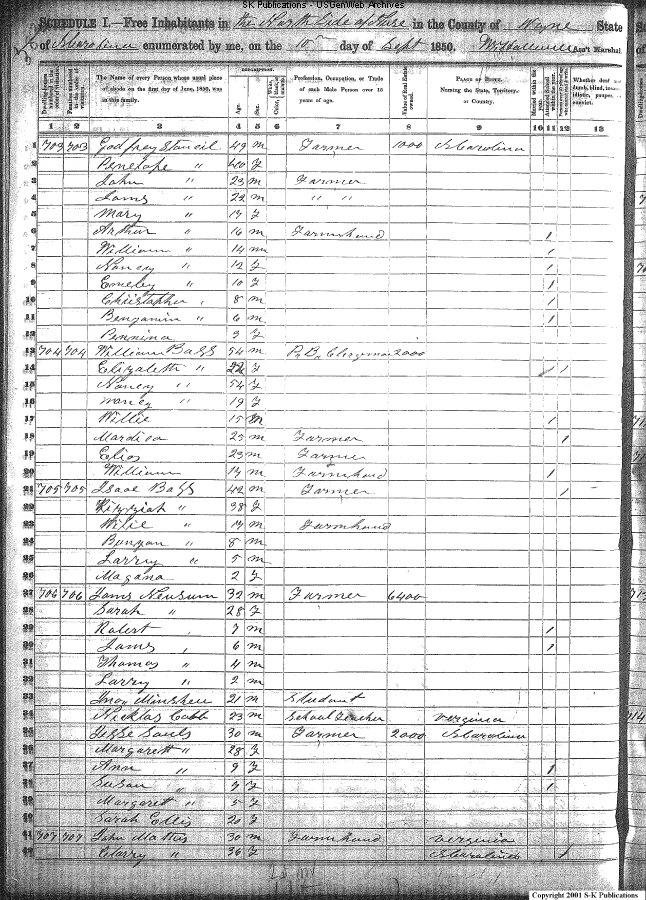 S-K Publications - USGenWeb Archives
SCHEDULE I.—Free Inhabitants in the North Side of in the County of Wayne State
of N Carolina enumerated by me, on the 10th day of Sept 1850. Ass't Marshal
DESCRIPTION.
Dwelling-houses numbered in the order of visitation.
Families numbered in the order of visitation.
The Name of every Person whose usual place of abode on the first day of June, 1850, was in this family.
Age.
Sex.
Color,
Profession, Occupation, or Trade of each Male Person over 15 years of age.
Value of Real Estate owned.
PLACE OF BIRTH. Naming the State, Territory, or Country.
Married within the year.
Attended School within the year.
Whether deaf and dumb, blind, insane, idiotic, pauper, or convict.
1 2 3 4 5 6 7 8 9 10 11 12 13
1 703 703 Godfrey Stancil 49 m Farmer 1000 N Carolina
2 Penelope " 40 F
3 John " 23 m Farmer
4 Jams " 22 m " "
5 Mary " 17 F
6 Arthur " 16 m Farmhand 1
7 William " 14 m 1
8 Nancy " 12 F 1
9 Emeley " 10 F 1
10 Christopher " 8 m 1
11 Benjamin " 6 m 1
12 Pennina 3 F
13 704 704 William Bass 54 m P. B. Clergyman 2000
14 Elizabeth " 22 F 1 1
15 Nancy " 54 F
16 nancy " 19 F
17 Willie 15 m 1
18 Mardica 25 m Farmer 1
19 Elias 23 m Farmer
20 William 17 m Farmhand 1
21 705 705 Isaac Bass 42 m Farmer 1
22 Kizziah " 38 F
23 Wilie " 17 m Farmhand
24 Bunyan " 8 m
25 Larry " 5 m
26 Magana 2 F
27 706 706 Jams Newsum 32 m Farmer 6400
28 Sarah " 28 F
29 Robert " 7 m 1
30 Jams " 6 m 1
31 Thomas " 4 m
32 Larry " 2 m
33 Minshew 21 m Student
34 Nicklas Cobb 23 m School Teacher Verginia
35 Jesse Sauls 30 m Farmer 2000 N Carolina
36 Margarett " 28 F
37 Ann " 9 F 1
38 Susan " 7 F 1
39 Margarett " 5 F
40 Sarah Ellis 20 F
41 707 707 John Mathis 30 m Farmhand Verginia
42 " 36 F N Carolina 1
Copyright 2001 S-K Publications